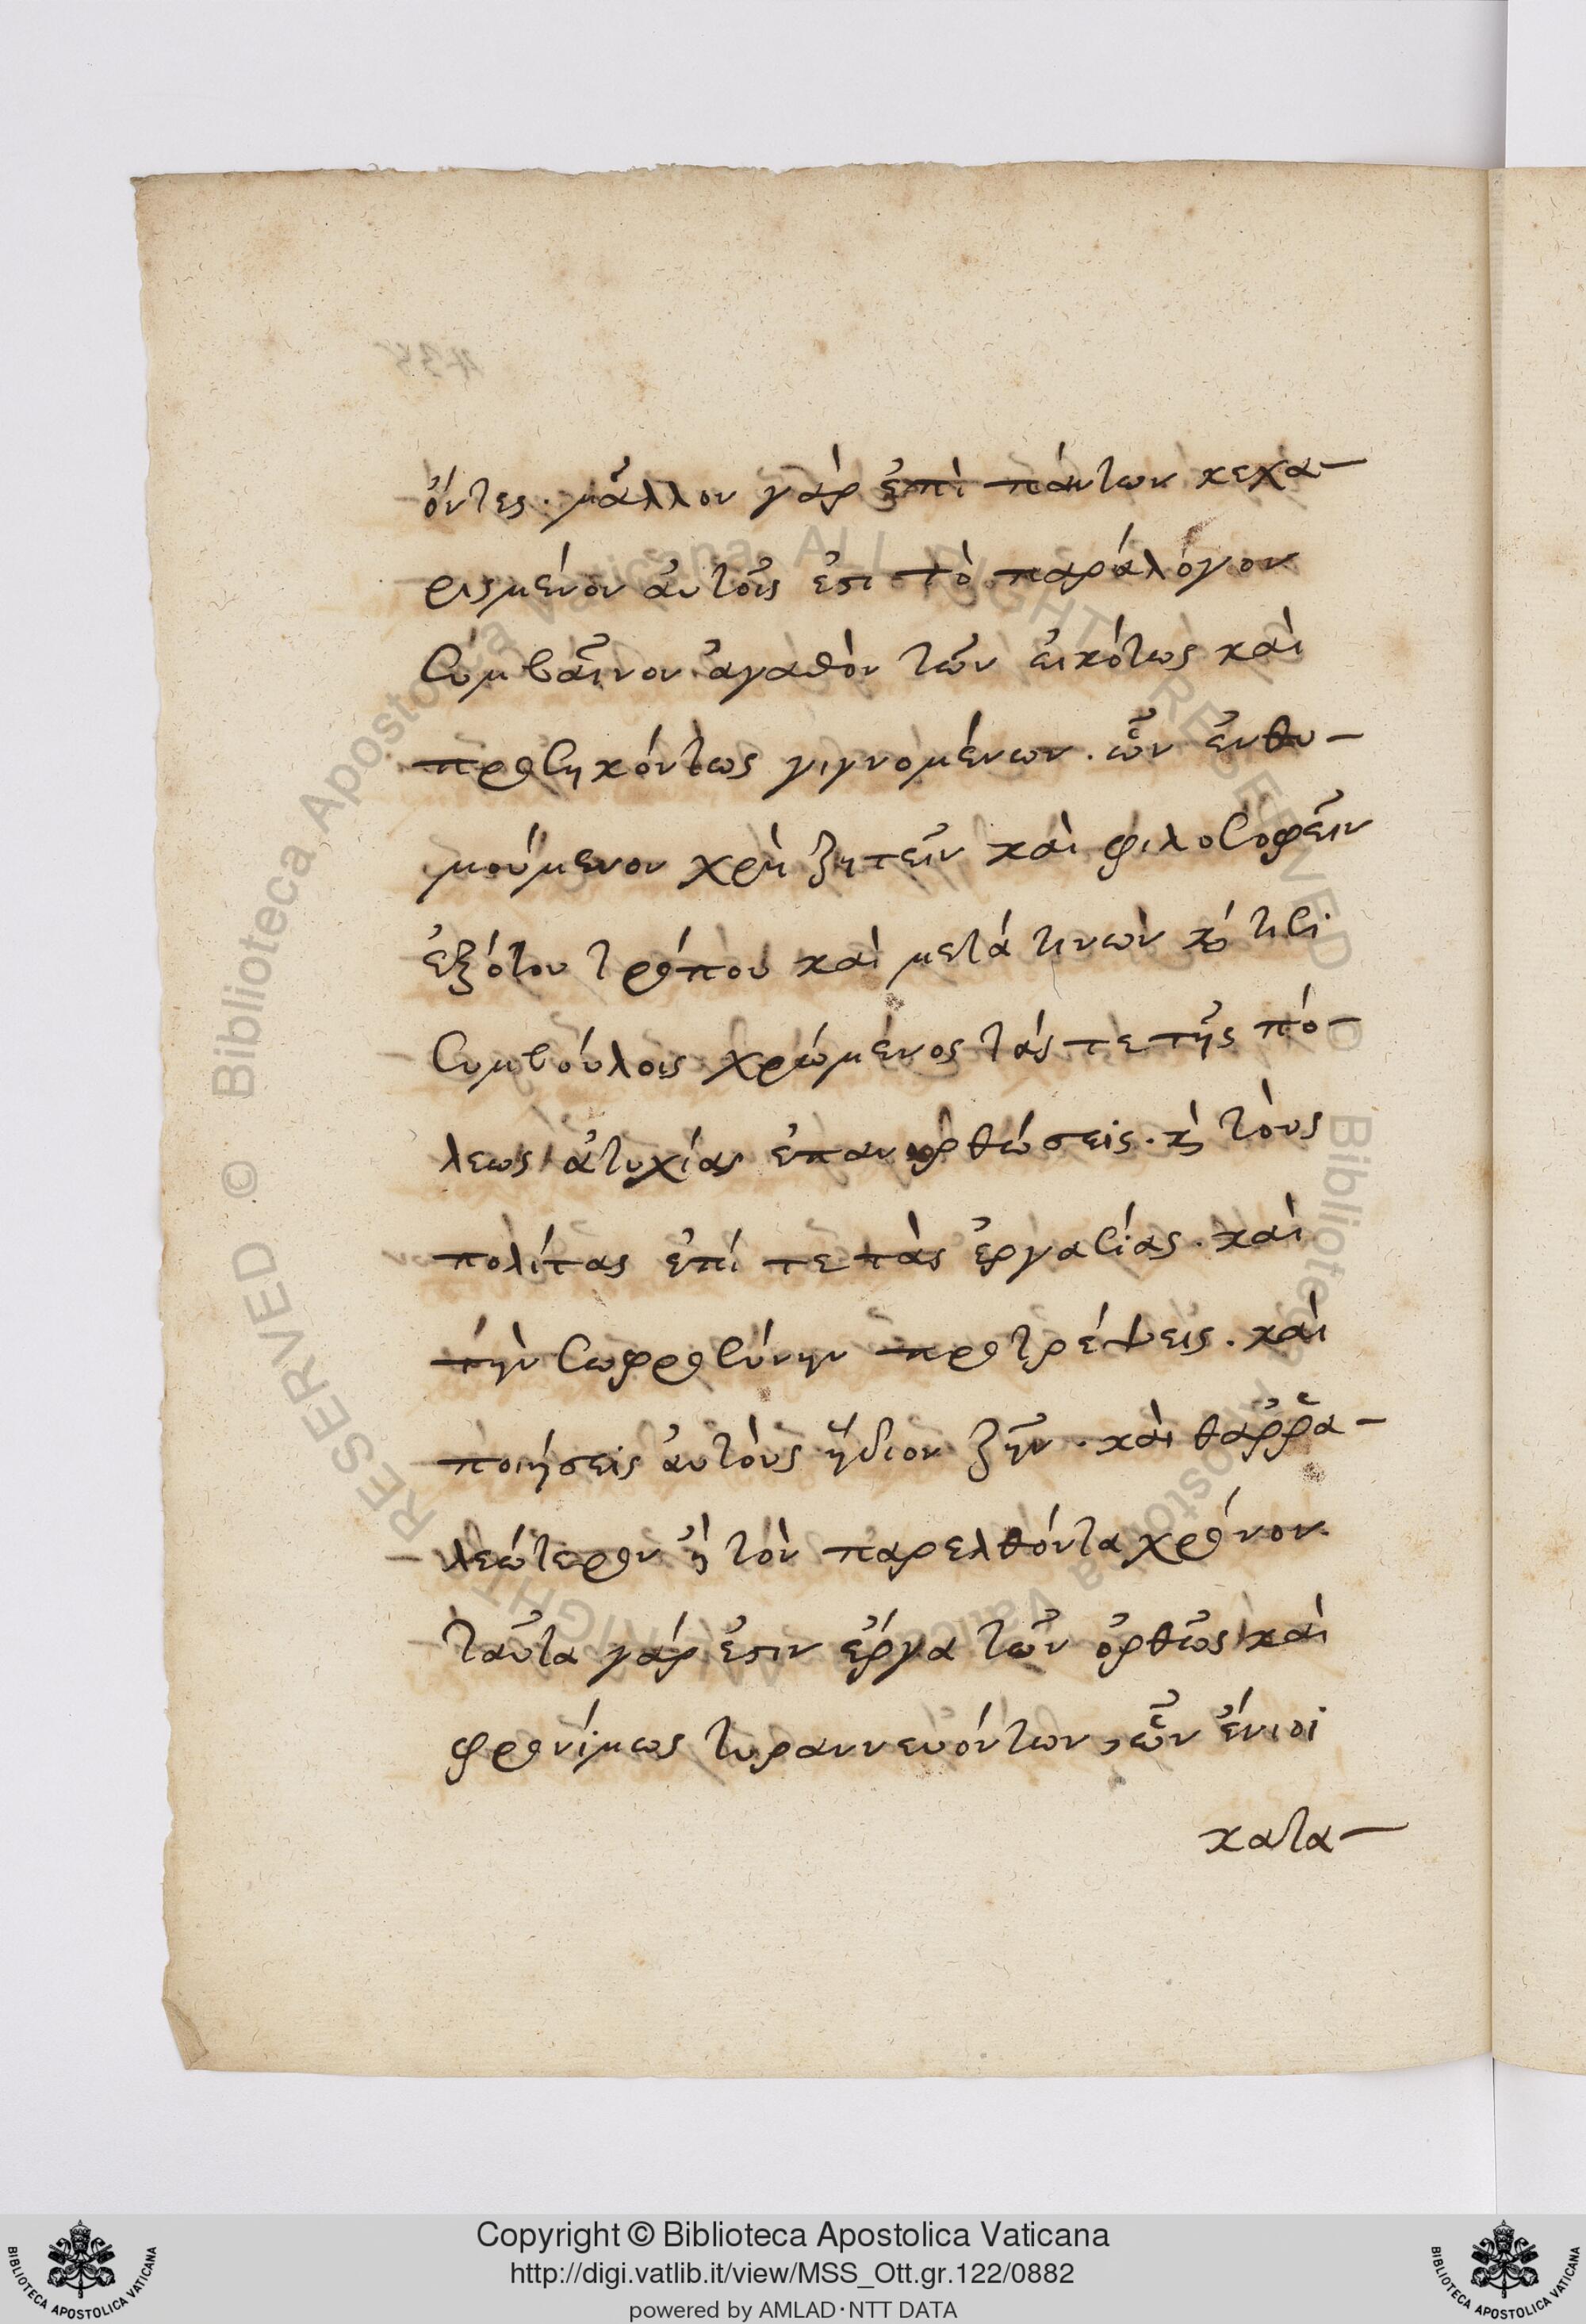 ὄντες· μᾶλλον γὰρ ἐπὶ πάντων κεχα-
ρισμένον αὐτοῖς ἐστι τὸ παράλόγον
συμβαῖνον ἀγαθὸν τῶν εἰκότως καὶ
προσηκόντως γιγνομένων. ὧν ἐνθυ-
μούμενον χρὴ ζητεῖν καὶ φιλοσοφεῖν
ἐξότου τρόπου καὶ μετά τινων καὶ τισι
συμβούλοις χρώμενος τάς τε τῆς πό-
λεως ἀτυχίας ἐπανορθώσεις. καὶ τοὺς
πολίτας ἐπί τε τὰς ἐργασίας. καὶ
τὴν σωφροσύνην προτρέψεις. καὶ
ποιήσεις αὐτοὺς ἥδιον ζῆν. καὶ θαῤῥα-
λεώτερον ἢ τὸν παρελθόντα χρόνον.
ταῦτα γάρ ἐστιν ἔργα τῶν ὀρθῶς καὶ
φρονίμως τυραννευόντων, ὧν ἔνιοι
κατα-
Copyright © Biblioteca Apostolica Vaticana
http://digi.vatlib.it/view/MSS_Ott.gr.122/0882
powered by AMLAD·NTT DATA
BIBLIOTECA APOSTOLICA VATICANA
BIBLIOTECA APOSTOLICA VATICANA